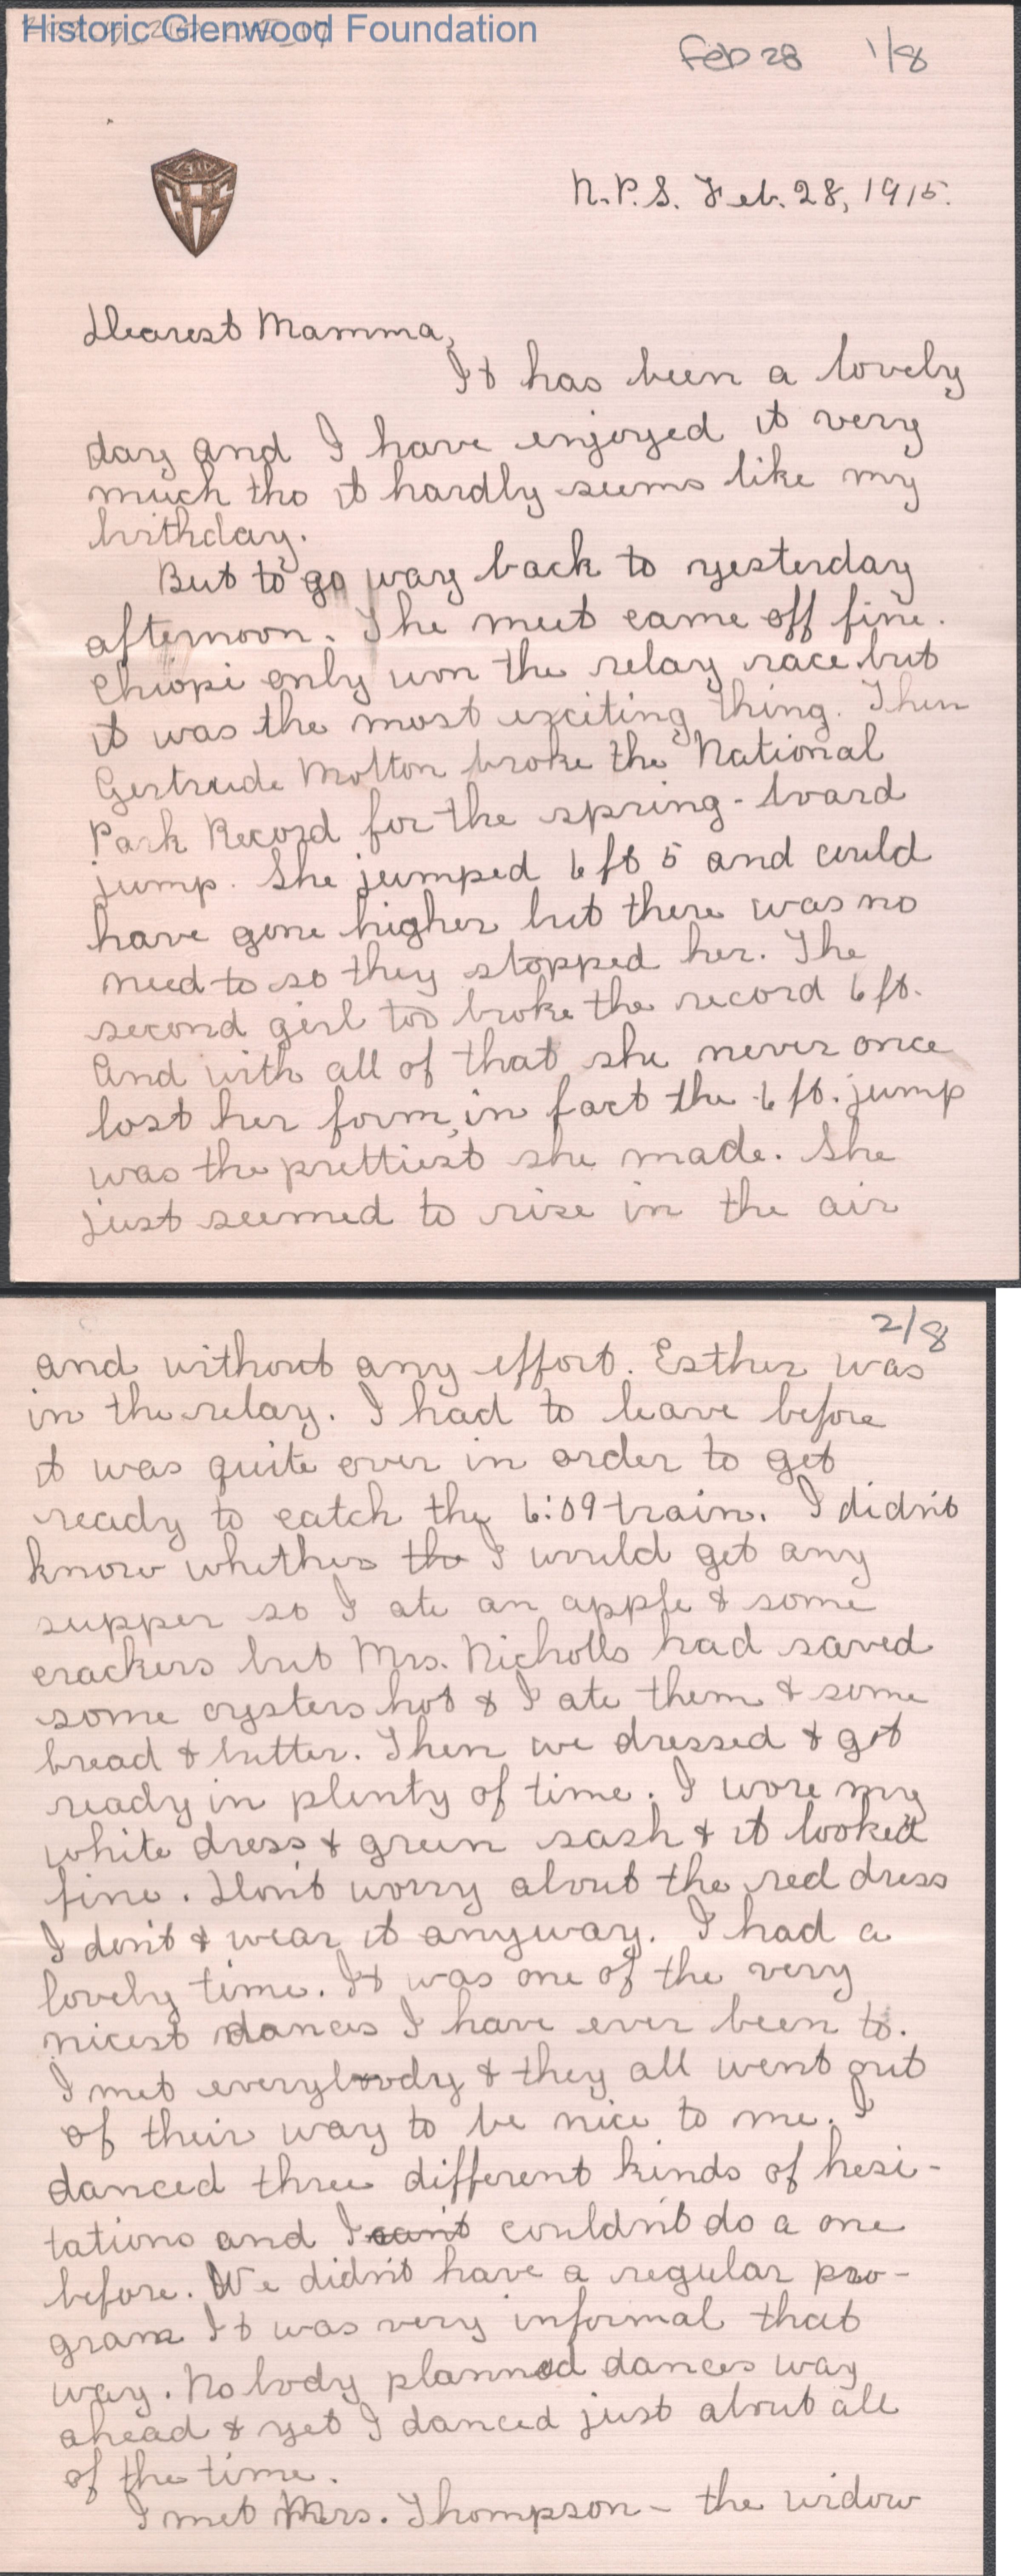 Historic Glenwood Foundation
Feb 28 1/8
N.P.S. Feb. 28, 1915.
Dearest Mamma,
It has been a lovely
day and I have enjoyed it very
much tho it hardly seems like my
birthday.
But to go way back to yesterday
afternoon. The meet came off fine.
Chiopi only won the relay race but
it was the most exciting thing. Then
Gertrude Molton broke the National
Park Record for the spring-board
jump. She jumped 6 ft 5 and could
have gone higher but there was no
need to so they stopped her. The
second girl too broke the record 6 ft.
And with all of that she never once
lost her form, in fact the 6 ft. jump
was the prettiest she made. She
just seemed to rise in the air
2/8
and without any effort. Esther was
in the relay. I had to leave before
it was quite over in order to get
ready to catch the 6:09 train. I didn't
know whether tho I would get any
supper so I ate an apple & some
crackers but Mrs. Nicholls had saved
some oysters hot & I ate them & some
bread & butter. Then we dressed & got
ready in plenty of time. I wore my
white dress & green sash & it looked
fine. Don't worry about the red dress
I don't & wear it anyway. I had a
lovely time. It was one of the very
nicest dances I have ever been to.
I met everybody & they all went out
of their way to be nice to me. I
danced three different kinds of hesi-
tations and I can't couldn't do a one
before. We didn't have a regular pro-
gram It was very informal that
way. Nobody planned dances way
ahead & yet I danced just about all
of the time.
I met Mrs. Thompson - the widow